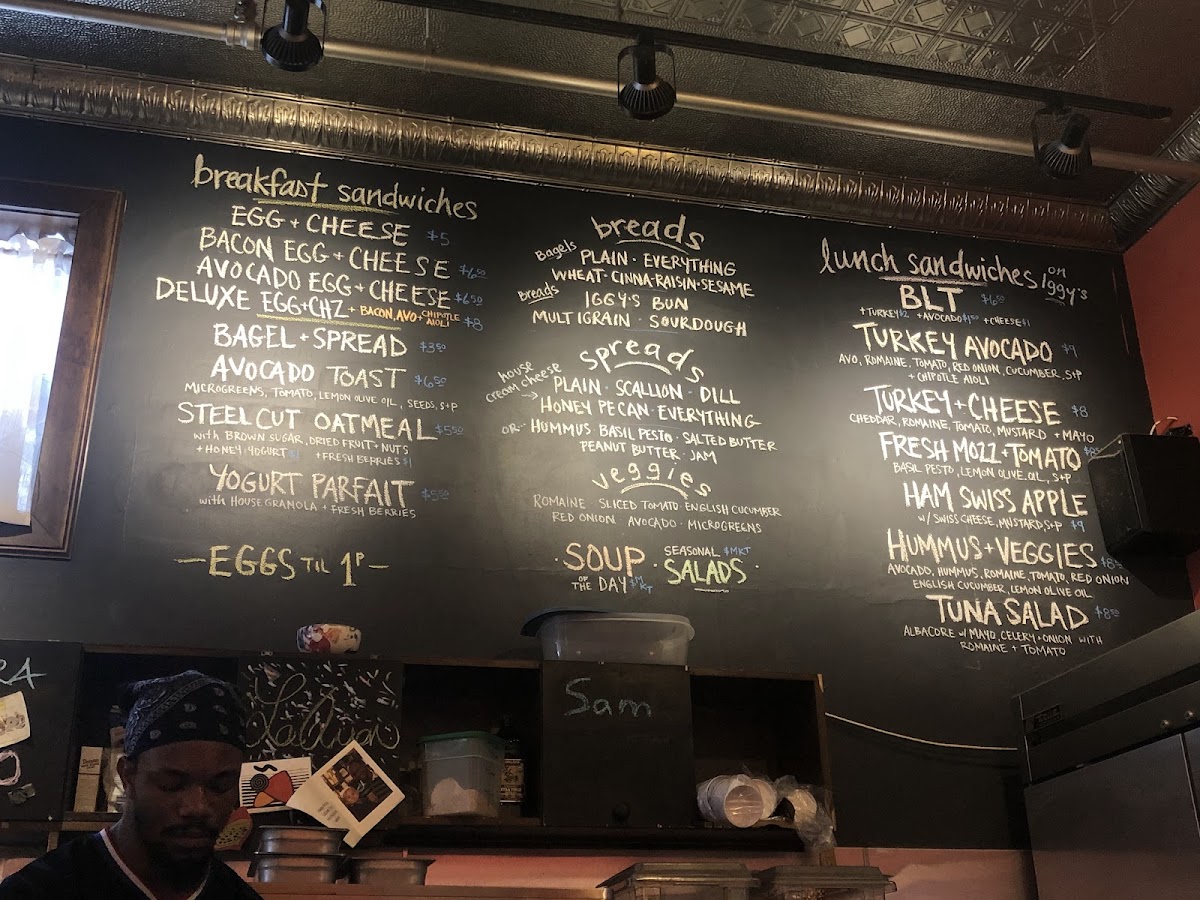 breakfast sandwiches
EGG + CHEESE $5
BACON EGG + CHEESE $6.50
AVOCADO EGG + CHEESE $6.50
DELUXE EGG+CHZ + BACON, AVO + CHIPOTLE AIOLI $8
BAGEL + SPREAD $3.50
AVOCADO TOAST $6.50
MICROGREENS, TOMATO, LEMON OLIVE OIL, SEEDS, S+P
STEEL CUT OATMEAL $5.50
with BROWN SUGAR, DRIED FRUIT + NUTS
+ HONEY·YOGURT $1 + FRESH BERRIES $1
YOGURT PARFAIT $5.50
with HOUSE GRANOLA + FRESH BERRIES
—EGGS TIL 1P—
breads
Bagels PLAIN · EVERYTHING
WHEAT · CINNA-RAISIN · SESAME
Breads IGGY'S BUN
MULTIGRAIN · SOURDOUGH
spreads
house cream cheese → PLAIN · SCALLION · DILL
HONEY PECAN · EVERYTHING
OR- HUMMUS BASIL PESTO · SALTED BUTTER
PEANUT BUTTER · JAM
veggies
ROMAINE SLICED TOMATO · ENGLISH CUCUMBER
RED ONION AVOCADO · MICROGREENS
· SOUP OF THE DAY $MKT
SEASONAL $MKT
SALADS ·
lunch sandwiches on Iggy's
BLT $6.50
+ TURKEY $2 + AVOCADO $1.50 + CHEESE $1
TURKEY AVOCADO $9
AVO, ROMAINE, TOMATO, RED ONION, CUCUMBER, S+P
+ CHIPOTLE AIOLI
TURKEY + CHEESE $8
CHEDDAR, ROMAINE, TOMATO, MUSTARD + MAYO
FRESH MOZZ + TOMATO
BASIL PESTO, LEMON OLIVE OIL, S+P
HAM SWISS APPLE
w/ SWISS CHEESE, MUSTARD, S+P $9
HUMMUS + VEGGIES
AVOCADO, HUMMUS, ROMAINE, TOMATO, RED ONION
ENGLISH CUCUMBER, LEMON OLIVE OIL
TUNA SALAD $8.50
ALBACORE w/ MAYO, CELERY + ONION WITH
ROMAINE + TOMATO
Sam